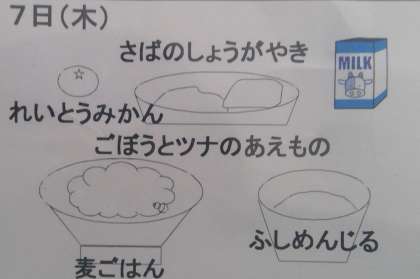 7日(木)
さばのしょうがやき
MILK
れいとうみかん
ごぼうとツナのあえもの
ふしめんじる
麦ごはん